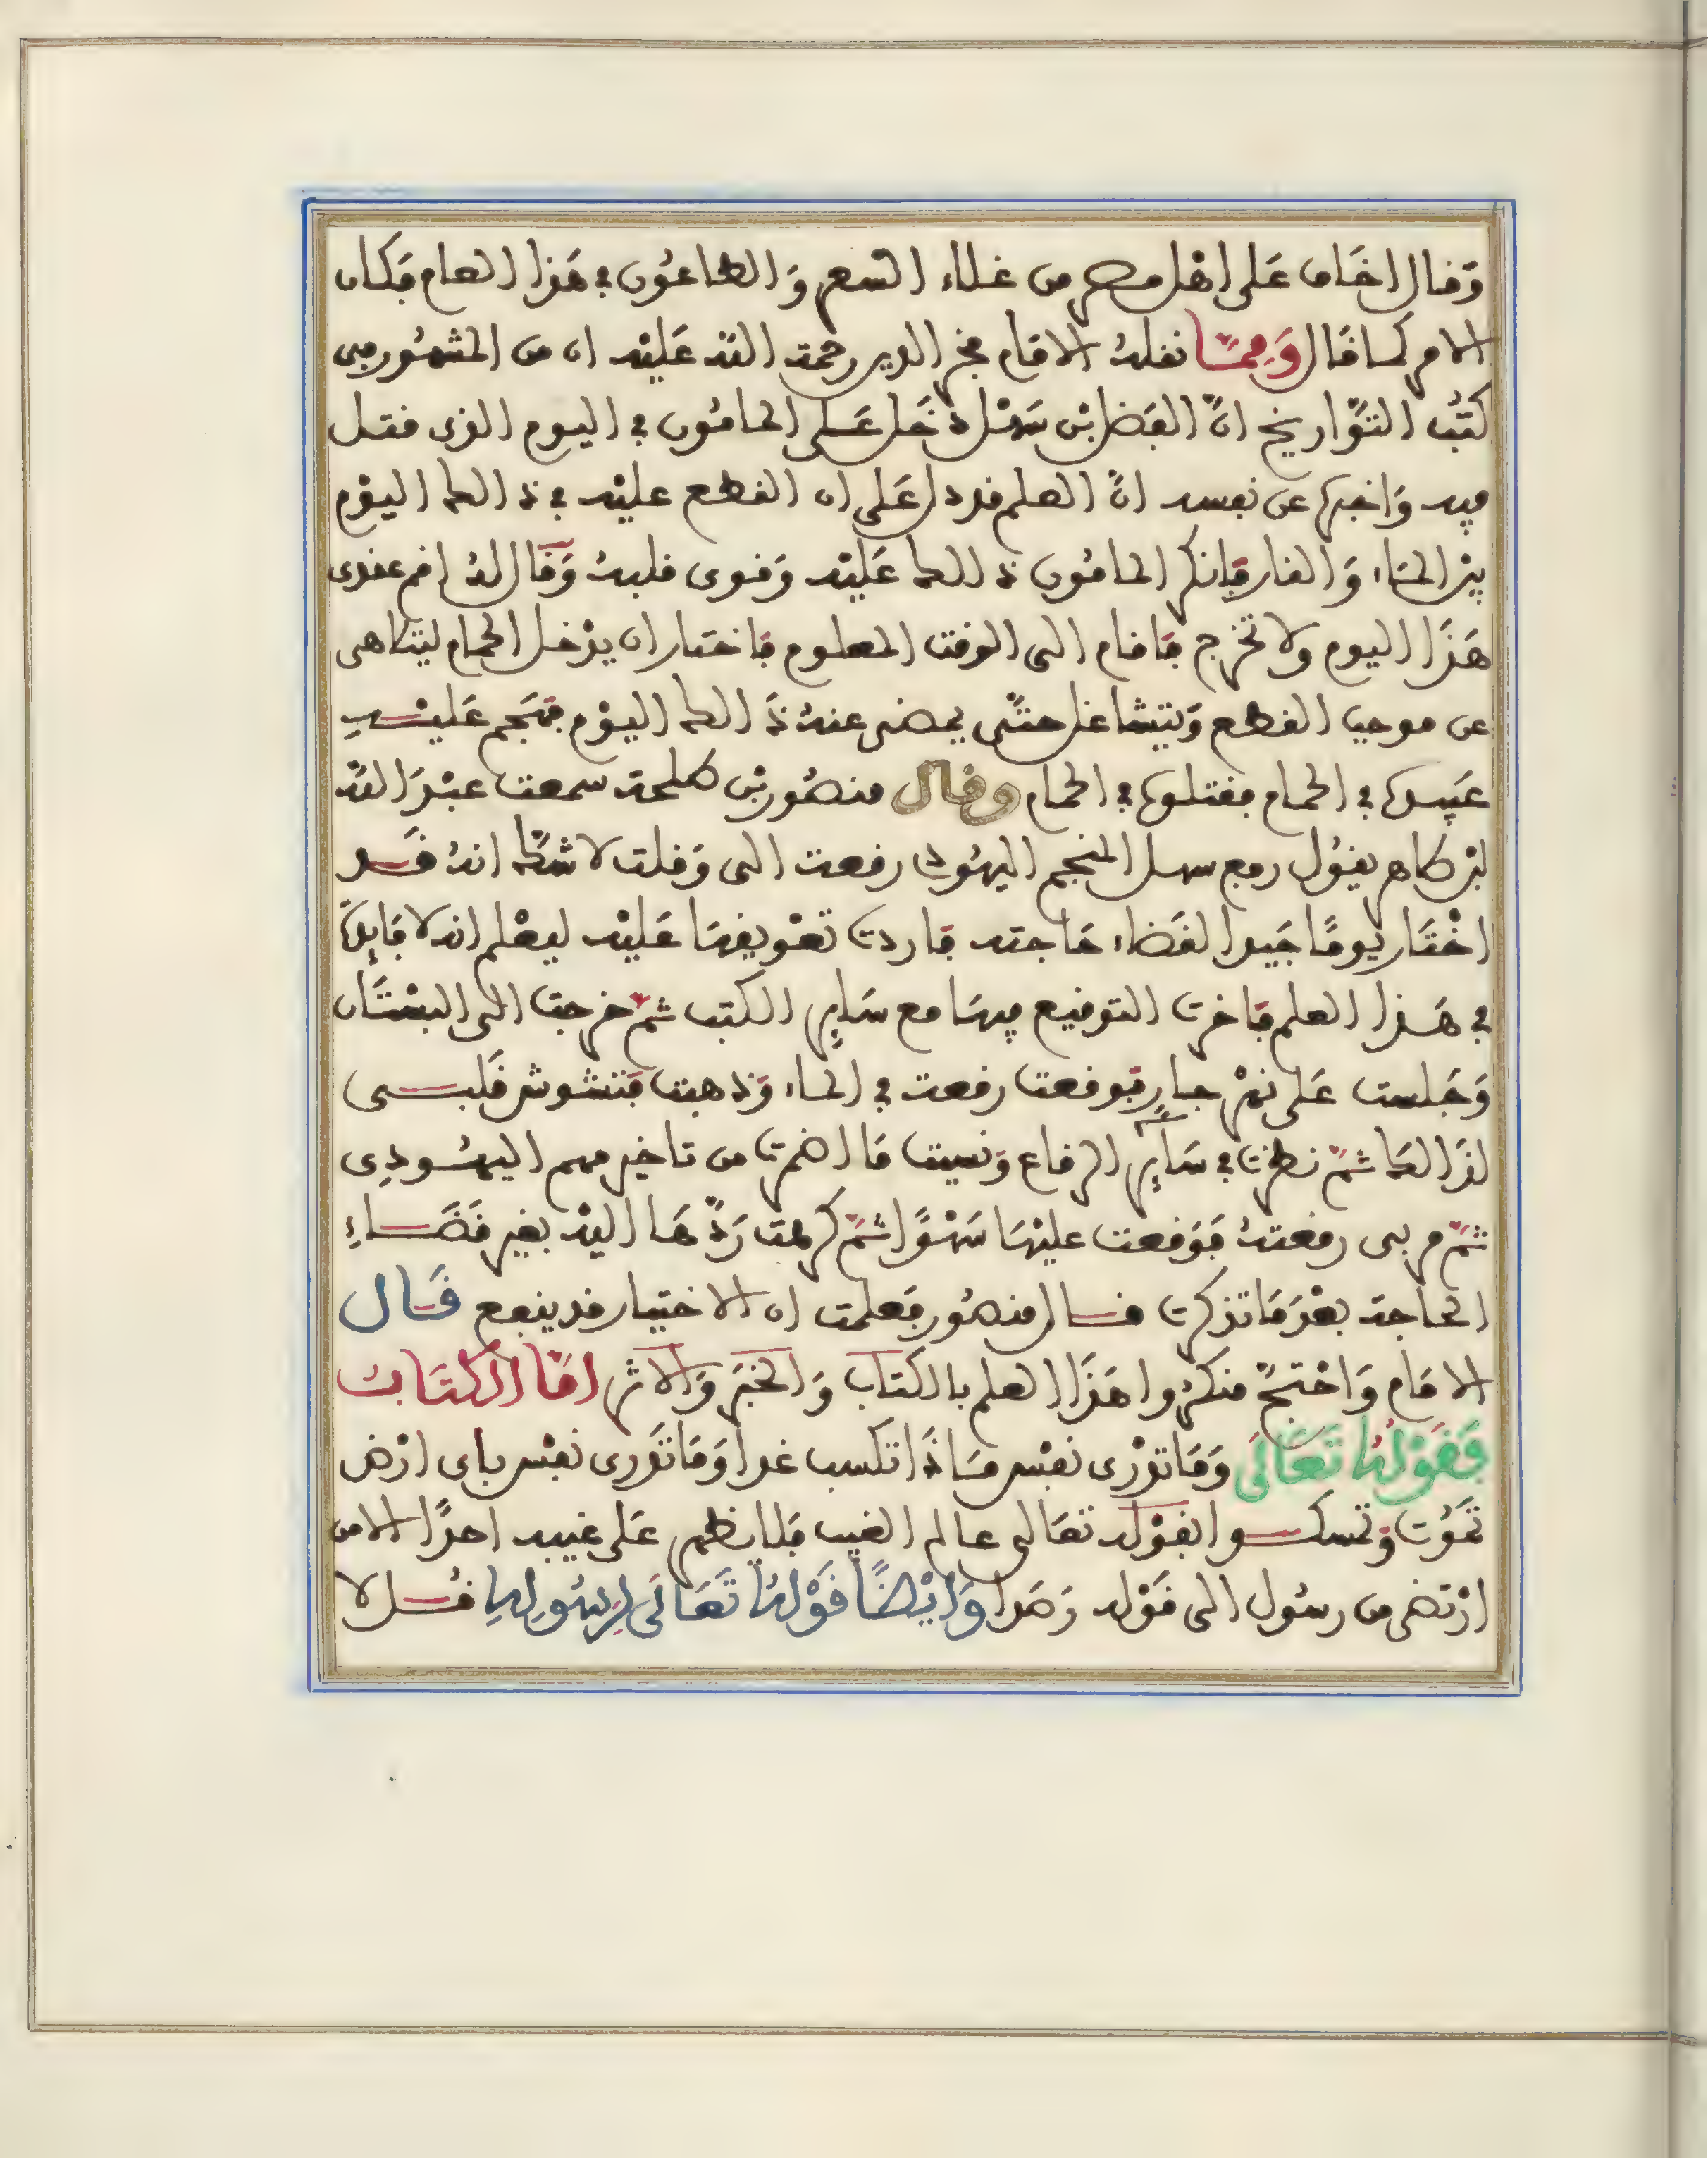 وَقال اخَاف عَلى اهْل مصر من غلاء السعر وَالطاعُون في هَذا العام فَكان
الامر كما قَال وَمِمَّا نقلهُ الامَام فخر الدين رحمة الله عَليْه ان من المشهُور في
كتُب التوَّاريخ انَّ الفَضل بْن سَهْل دَخَل عَلى المامُون في اليوم الذي قتل
فيه وَاخبر عن نفسه انَّ العلم قد دل عَلى ان القطع عليْه في ذالك اليوْم
بيْن المَاء وَالنار فَانكر المامُون ذالك عَليْه وَقوى قلبهُ وَقَال لهُ اقم عندى
هَذَا اليوم ولا تخْرج فَاقام الى الوقت المعلوم فَاختار ان يدْخل الحمام ليتلاهى
عن موجب القطع وَيتشاغل حتَّى يمضى عنهُ ذَالك اليوْم فهَجم عَليْهِ
عَبيده في الحمام فقتلوه في الحمام وقال منصُور بْن طلحة سمعت عبْدَ الله
ابْن طاهر يقُول رفع سهل المنجم اليهُودى رقعة الى وَقلت لا شكَّ انهُ قَد
اخْتَار يومًا جَيدا لقَضاء حَاجته فَاردت تعْويقهَا عَليْه ليعْلم انه لا فَايِدَة
في هَذا العلم فَاخرت التوقيع فيهَا مع سَايِر الكتب ثمَّ خرجت الى البسْتَان
وَجَلست عَلى نهْر جارٍ فَوقعت رقعة في الماء وَذهبت فَتشوش قَلبى
لذَالك ثمَّ نظرت في سَايِر الرقاع وَنسيت مَا اضمرت من تاخير مهم اليهُودِى
ثمَّ مر بى رقعتهُ فَوَقعت عليْهَا سَهْوًا ثمَّ كرهت رَدَّهَا اليْه بغير قَضَاءِ
الحاجة بعْدَ مَا تذكرت قال منصُور فَعلمت ان الاختيار قد ينفع قَال
الامَام وَاحْتجَّ منكرُوا هَذَا العلم بالكتَاب وَالخبَر وَالاثر امَّا الكتَابُ
فَقَوْلهُ تَعَالَى وَمَا تدْرى نفْس مَاذَا تكسب غدا وَمَا تَدرى نفْس باى ارْض
تَمُوت وَتمسكوا بقوْله تعَالى عالم الغيب فَلا يظهر عَلى غيبه احدًا الا من
ارْتضى من رسُول الى قَوْله رَصَدا وَايْضًا قَوْلهُ تَعَالَى لِرسُولِهِ قُل لا